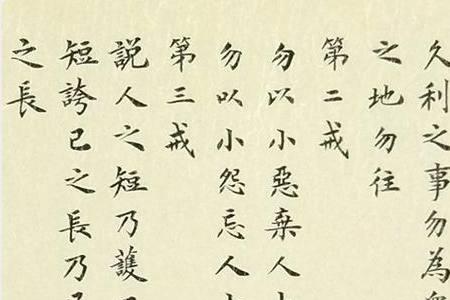 久利之事勿為
之地勿往
第二戒
勿以小惡棄人
勿以小怨忘人
第三戒
說人之短乃護
短誇己之長乃
之長